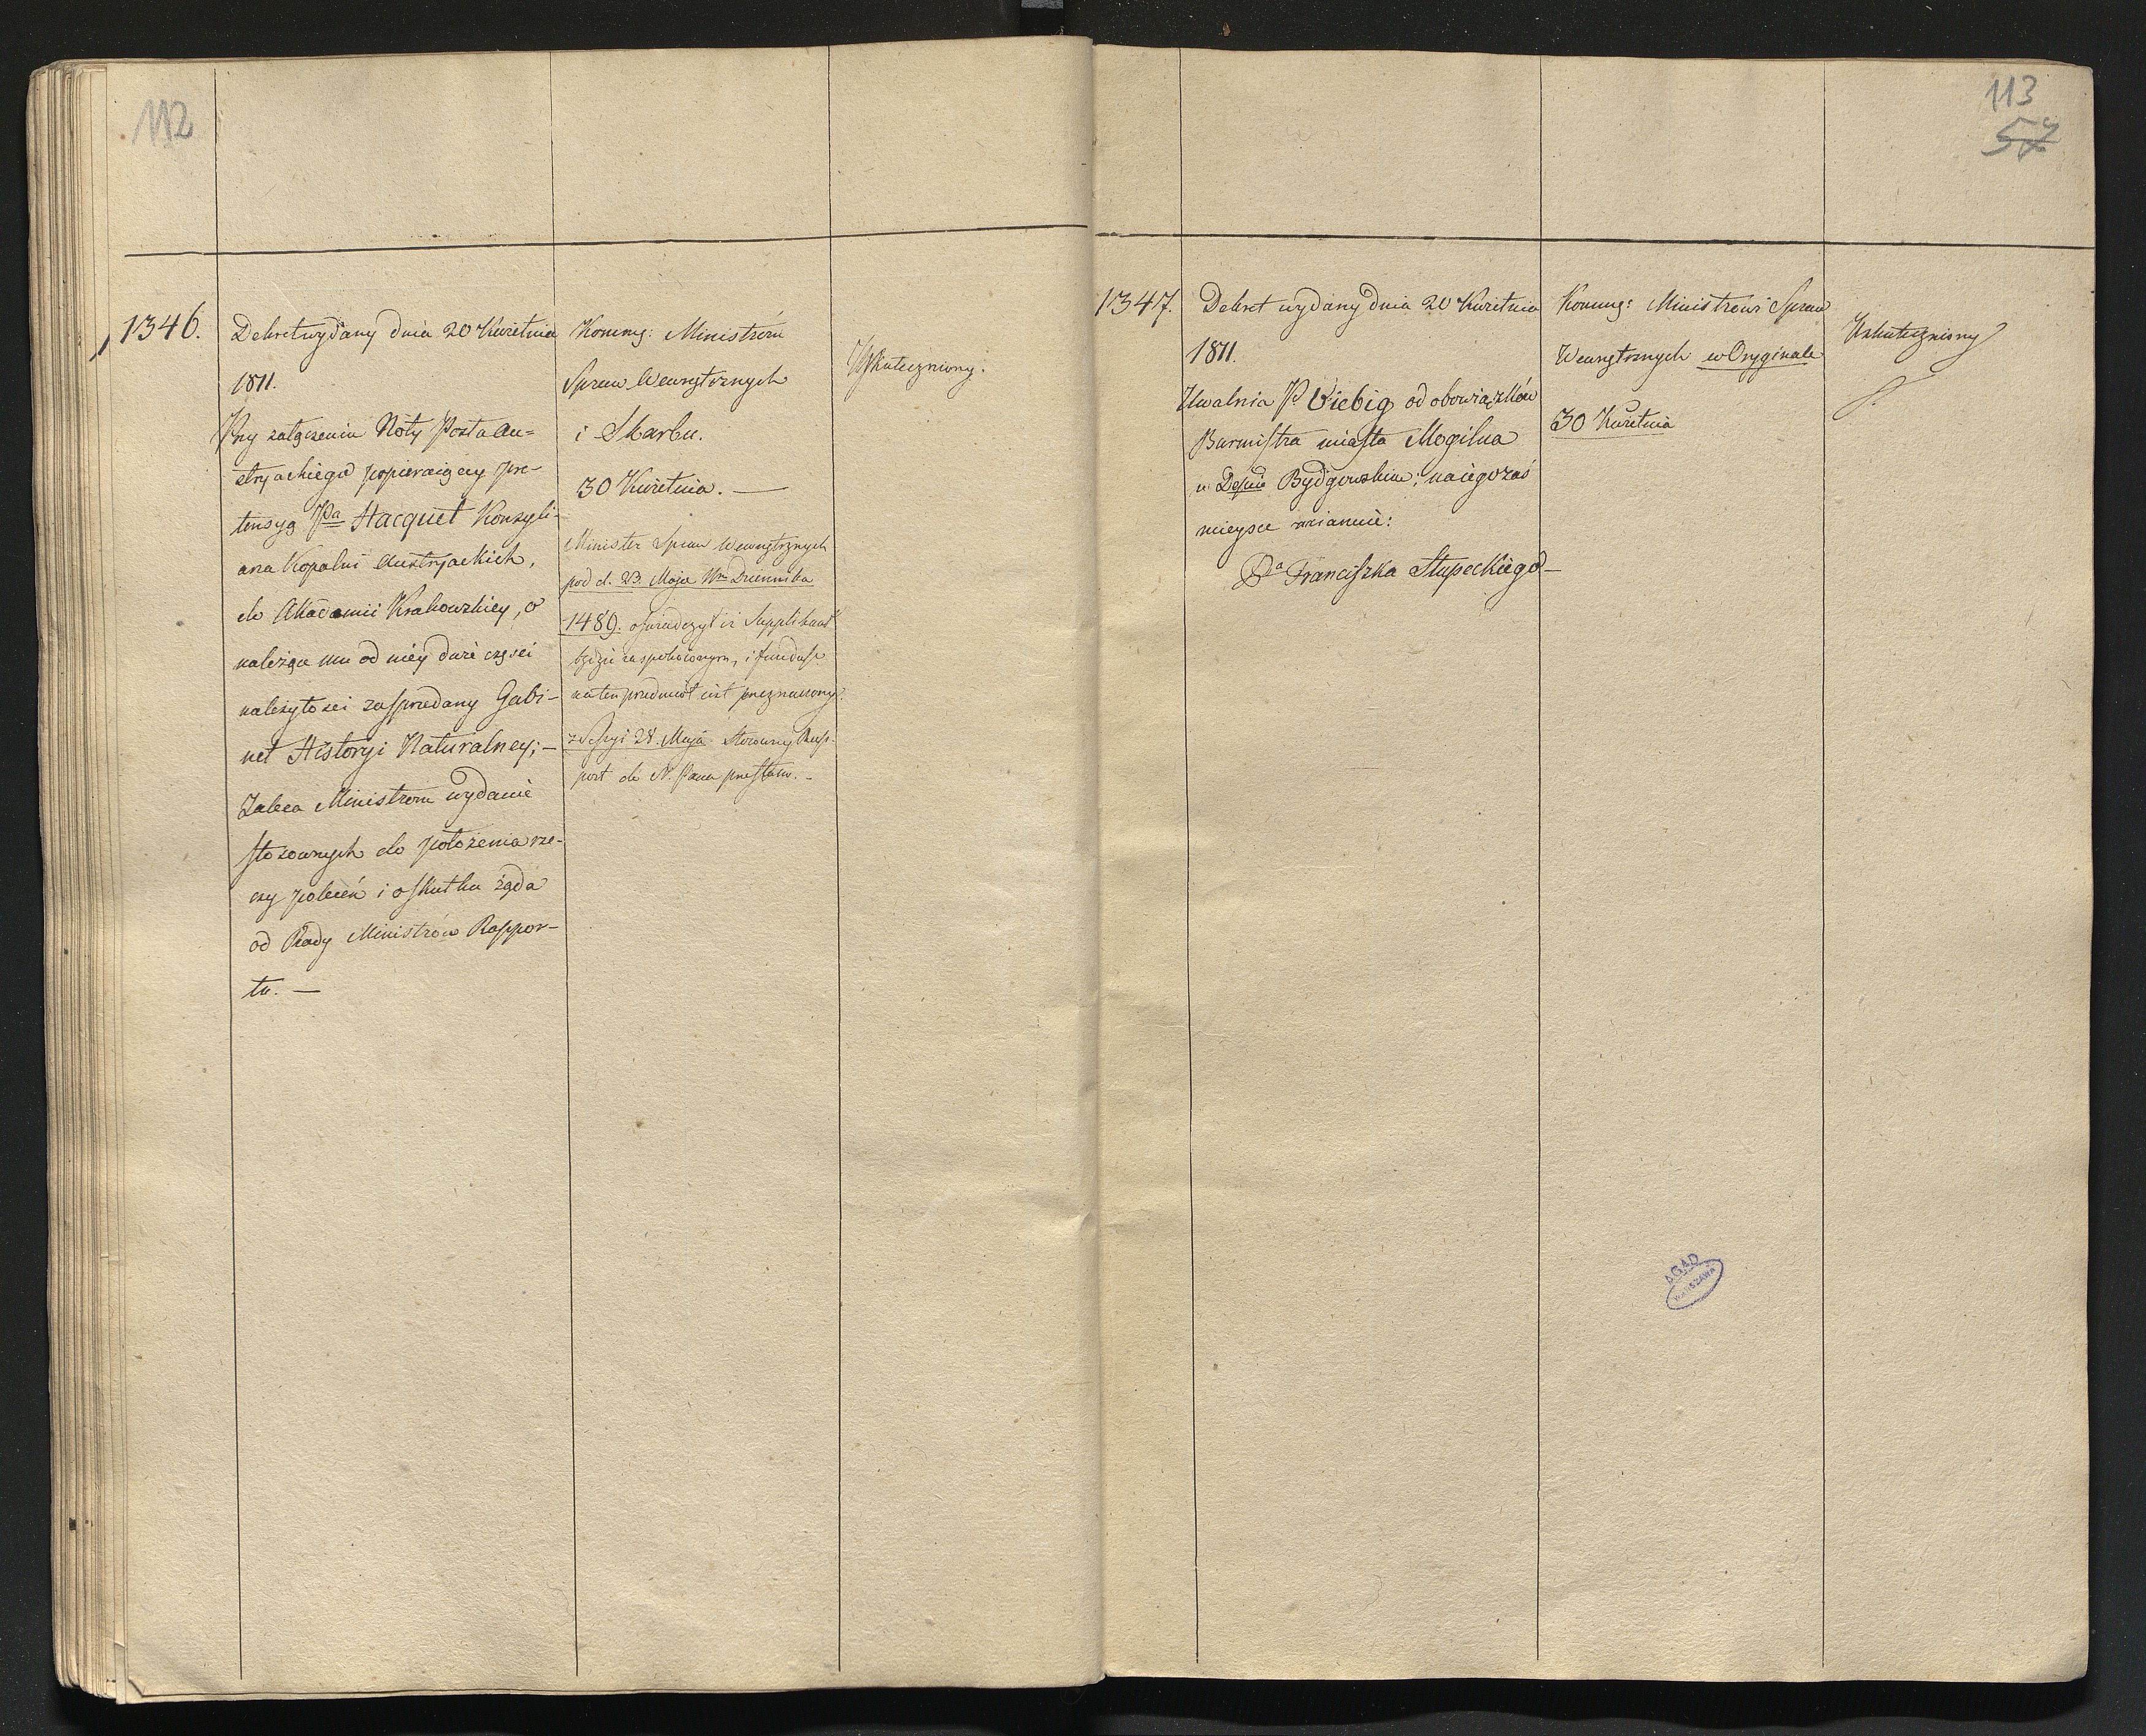 112
1346.
Dekret wydany dnia 20 Kwietnia
1811.
Przy załączeniu Noty Posła Au=
stryackiego popieraiącey pre-
tensyą Pa Hacquet Konsyli-
arza Kopalni Austryackich,
do Akademii Krakowskiey, o
należące mu od niey dwie częsci
należytosci za sprzedany Gabi-
net Historyi Naturalney; –
Zaleca Ministrom wydanie
stosownych do położenia rze-
czy poleceń i o skutku żąda
od Rady Ministrów Rappor-
tu. –
Kommg: Ministróm
Spraw Wewnętrznych
i Skarbu.
30 Kwietnia. –
Minister Spraw Wewnętrznych
pod d. 23. Maja Nm Dziennika
1489. oswiadczył iż Supplikant
będzie zaspokoionym, i fundusz
na ten przedmiot iest przeznaczony.
z Sessyi 28. Maja. Stosowny Rap-
port do N. Pana przesłano. –
Uskuteczniony.
113
57
1347.
Dekret wydany dnia 20 Kwietnia
1811.
Uwalnia P. Viebig od obowiązków
Burmistra miasta Mogilna
w Depcie Bydgowskim; na iego zaś
mieysce mianuie:
Pa Franciszka Słupeckiego –
Kommg: Ministrowi Spraw
Wewnętrznych w Oryginale
30 Kwietnia
Uskuteczniony
AGAD
WARSZAWA